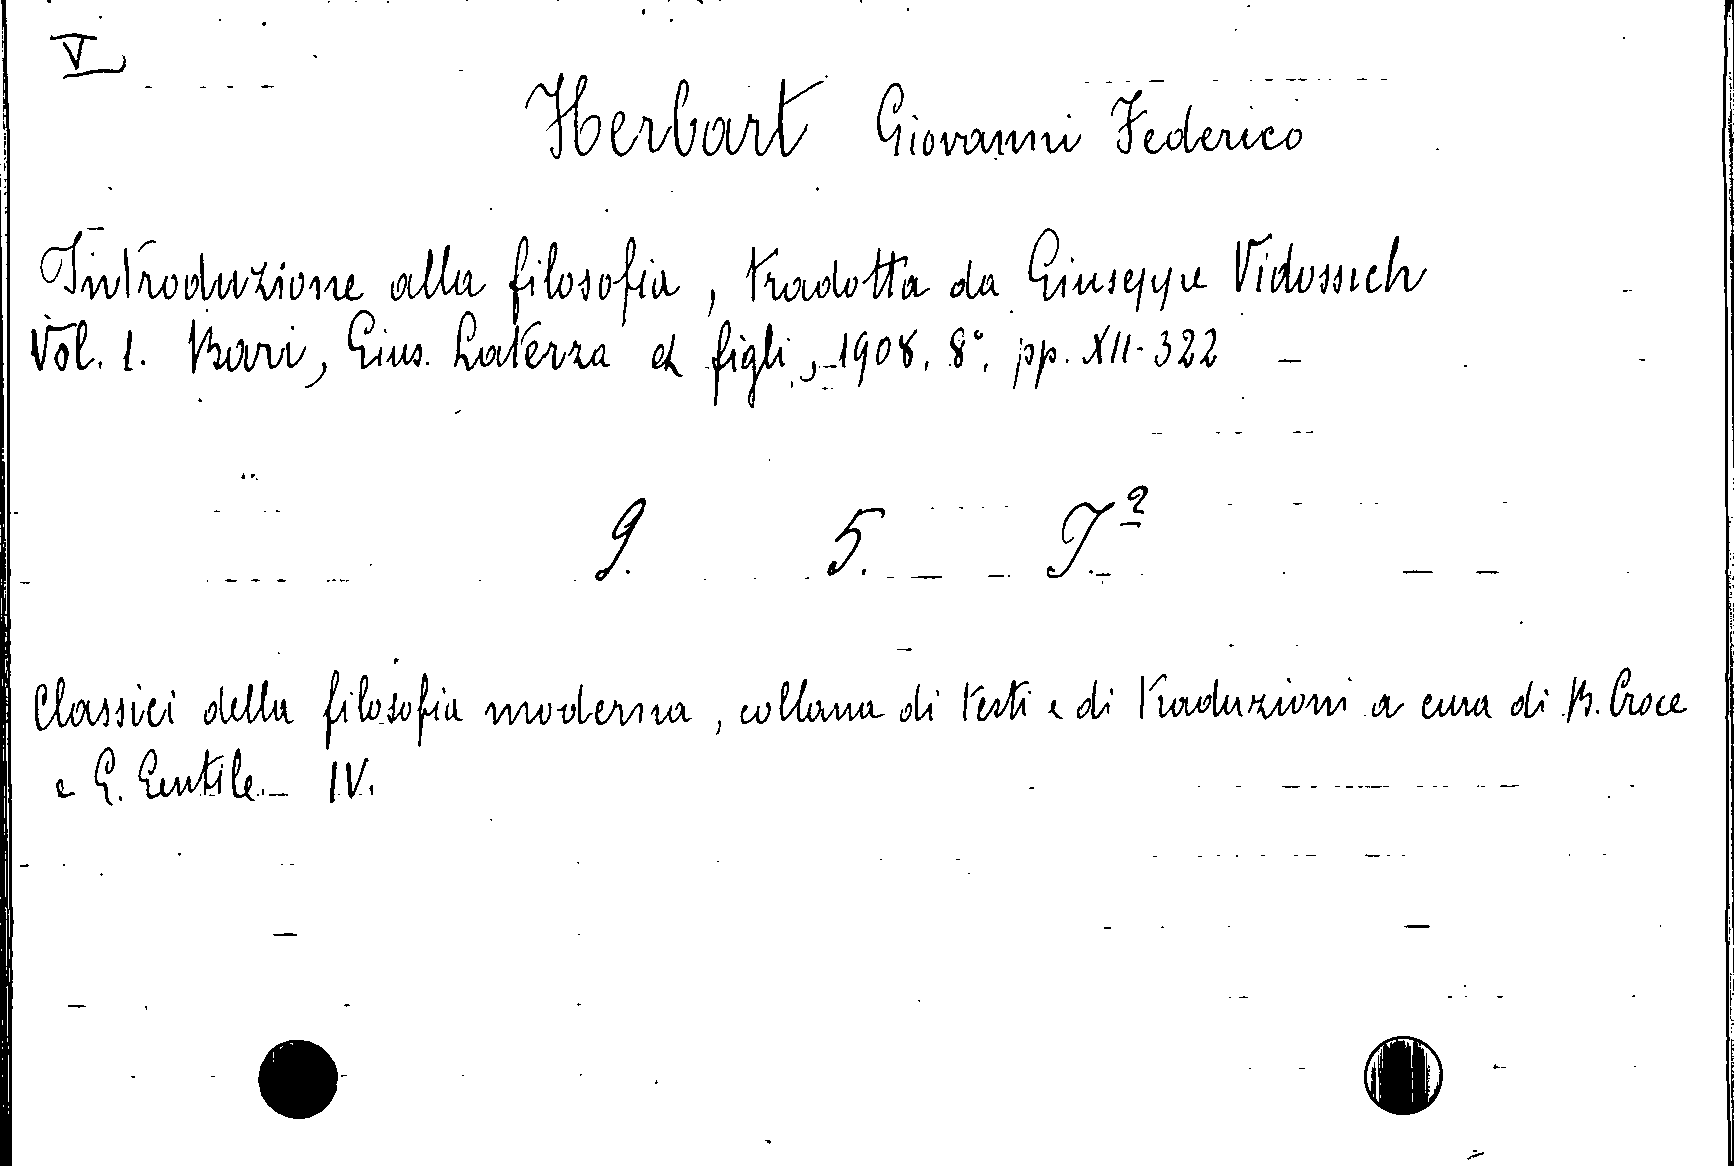 V
Herbart Giovanni Federico
Introduzione alla filosofia, tradotta da Giuseppe Vidossich
Vol. 1. Bari, Gius. Laterza & figli, 1908. 8°. pp. XII-322
9. 5. I²
Classici della filosofia moderna, collana di testi e di traduzioni a cura di B. Croce
e G. Gentile - IV.